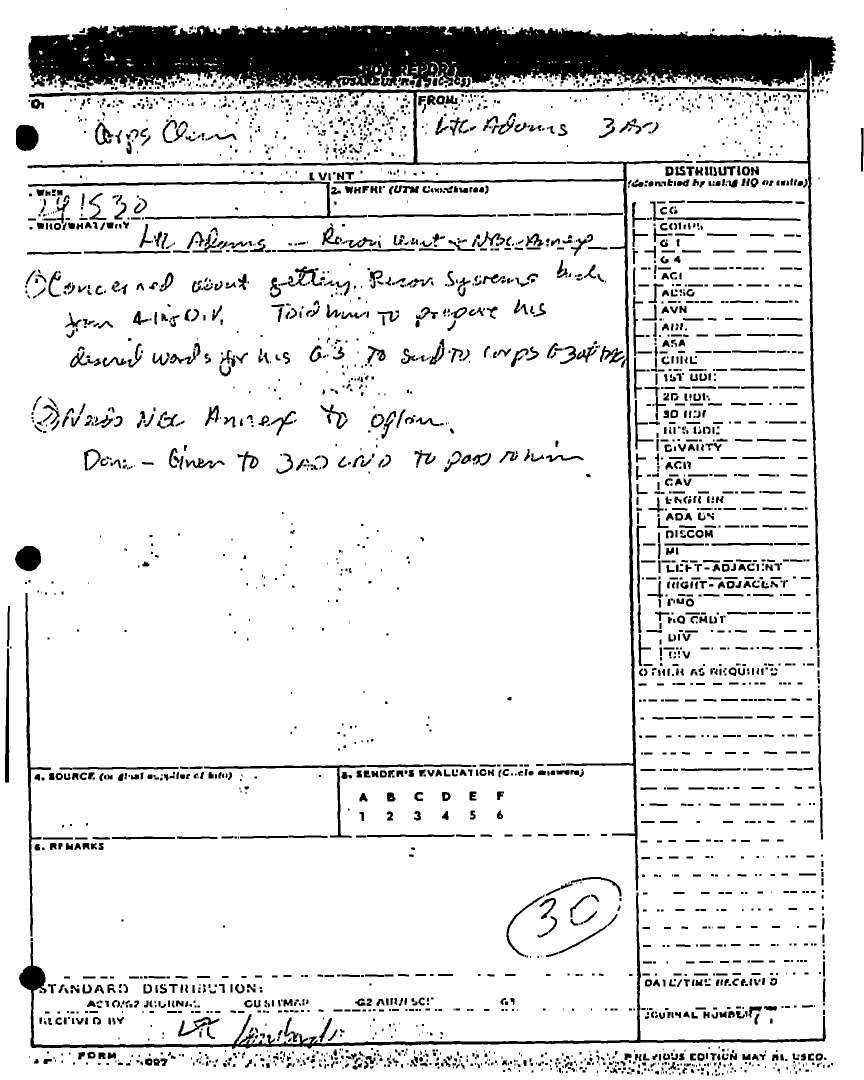 SPOT REPORT
TO:
FROM:
Corps Chem
LTC Adams 3AD
EVENT
1. WHEN
2. WHERE (UTM Coordinates)
241530
3. WHO/WHAT/WHY
LTC Adams — Recon Unit + NBC Annex
① Concerned about getting Recon Systems back
from Div. Told him to prepare his
desired words for his G-3 to send to Corps G3
② Needs NBC Annex to oplan.
Done - Given to 3AD LNO to pass to him.
4. SOURCE (original supplier of info)
5. SENDER'S EVALUATION (Circle answers)
A B C D E F
1 2 3 4 5 6
6. REMARKS
30
STANDARD DISTRIBUTION:
G2 JOURNAL G2 SITMAP G2 AIR
RECEIVED BY
LTC
FORM
DISTRIBUTION
(determined by using HQ or units)
CG
CORPS
G 1
G 4
AVN
ASA
CHML
1ST BDE
2D BDE
3D BDE
RES BDE
DIVARTY
ACR
CAV
ENGR BN
ADA BN
DISCOM
MI
LEFT-ADJACENT
RIGHT-ADJACENT
PMO
HQ CMDT
DIV
DIV
OTHER AS REQUIRED
DATE/TIME RECEIVED
JOURNAL NUMBER 77
PREVIOUS EDITION MAY BE USED.